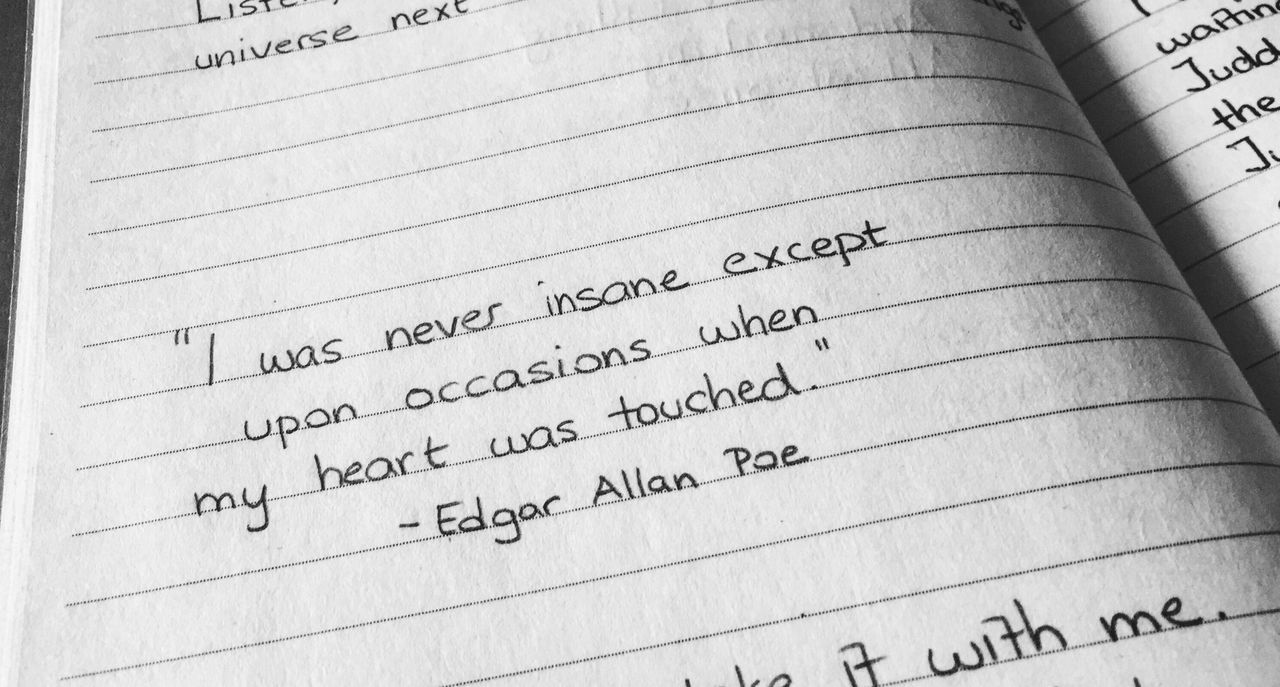 Listen,
universe next
"I was never insane except
upon occasions when
my heart was touched."
- Edgar Allan Poe
it with me.
waiting
Judd
the